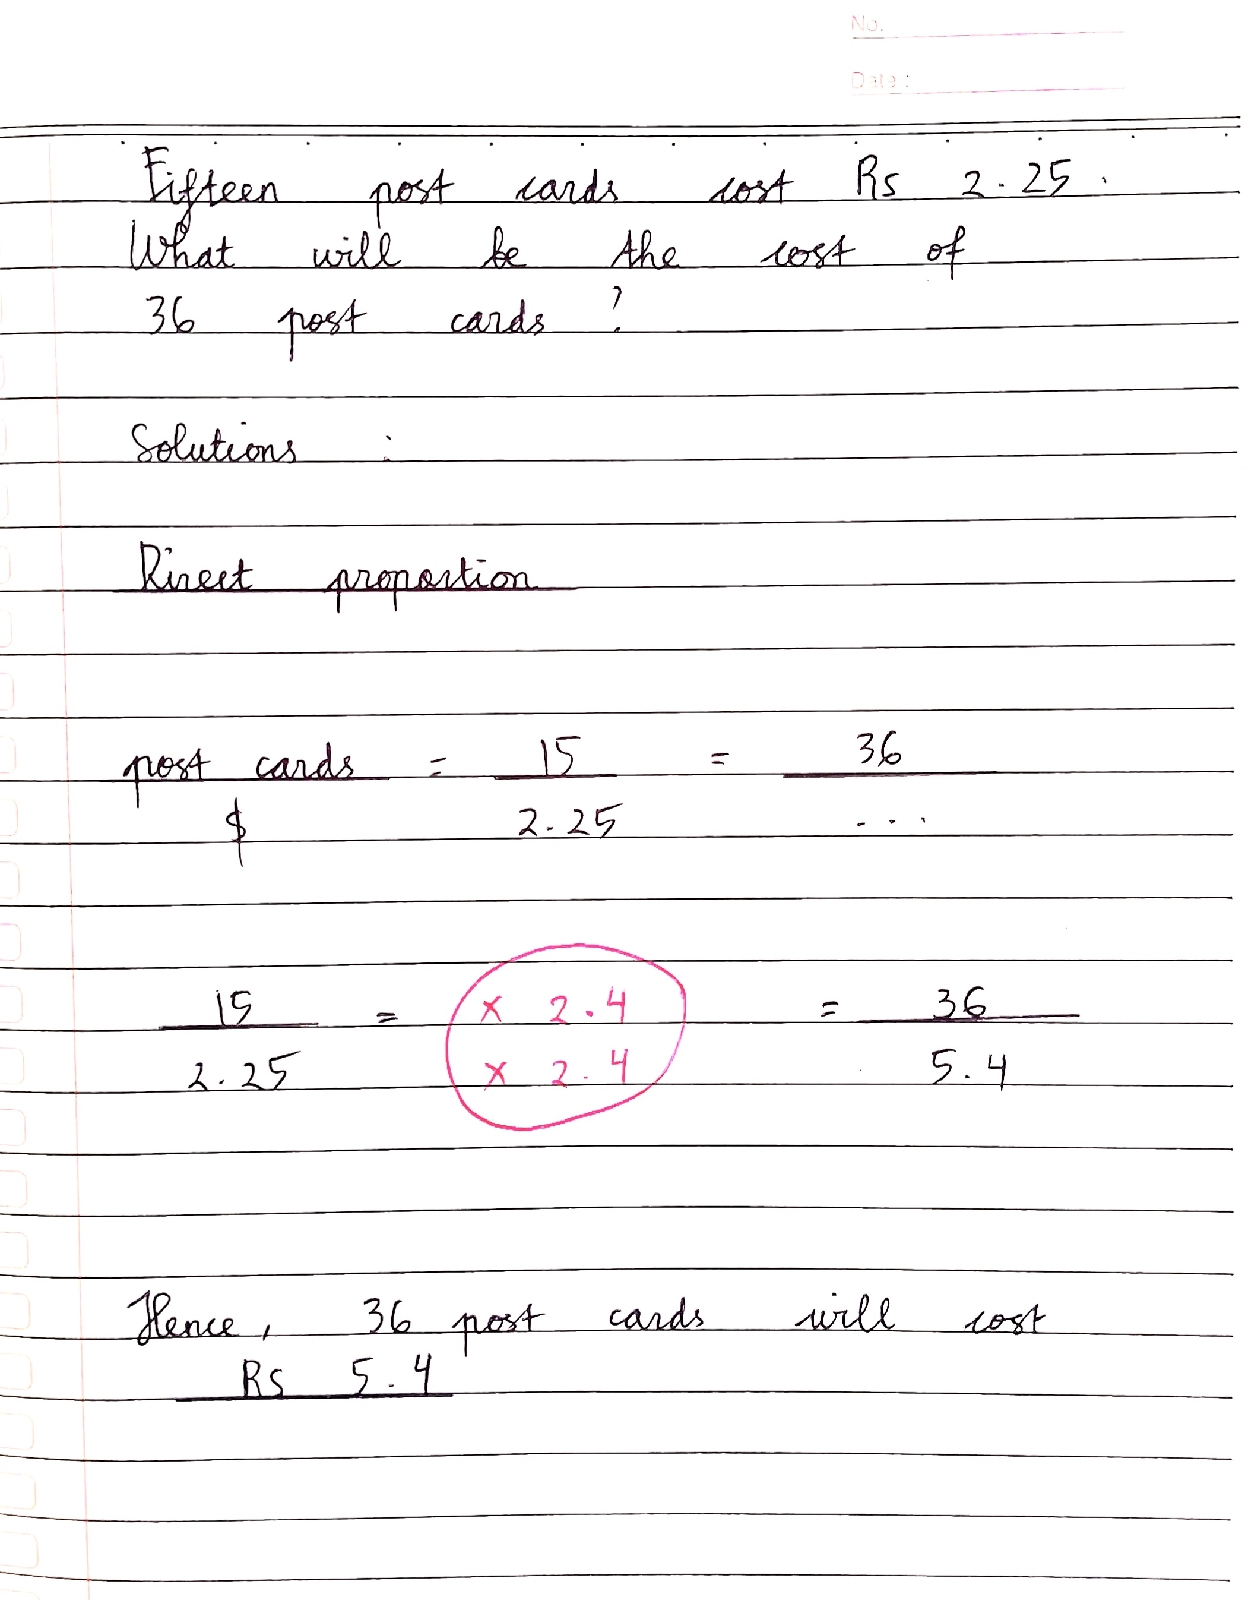 No.
Date:
Fifteen post cards cost Rs 2.25.
What will be the cost of
36 post cards?
Solutions :
Direct proportion
post cards = 15 = 36
$ 2.25 ...
15 = × 2.4 = 36
2.25 × 2.4 5.4
Hence, 36 post cards will cost
Rs 5.4